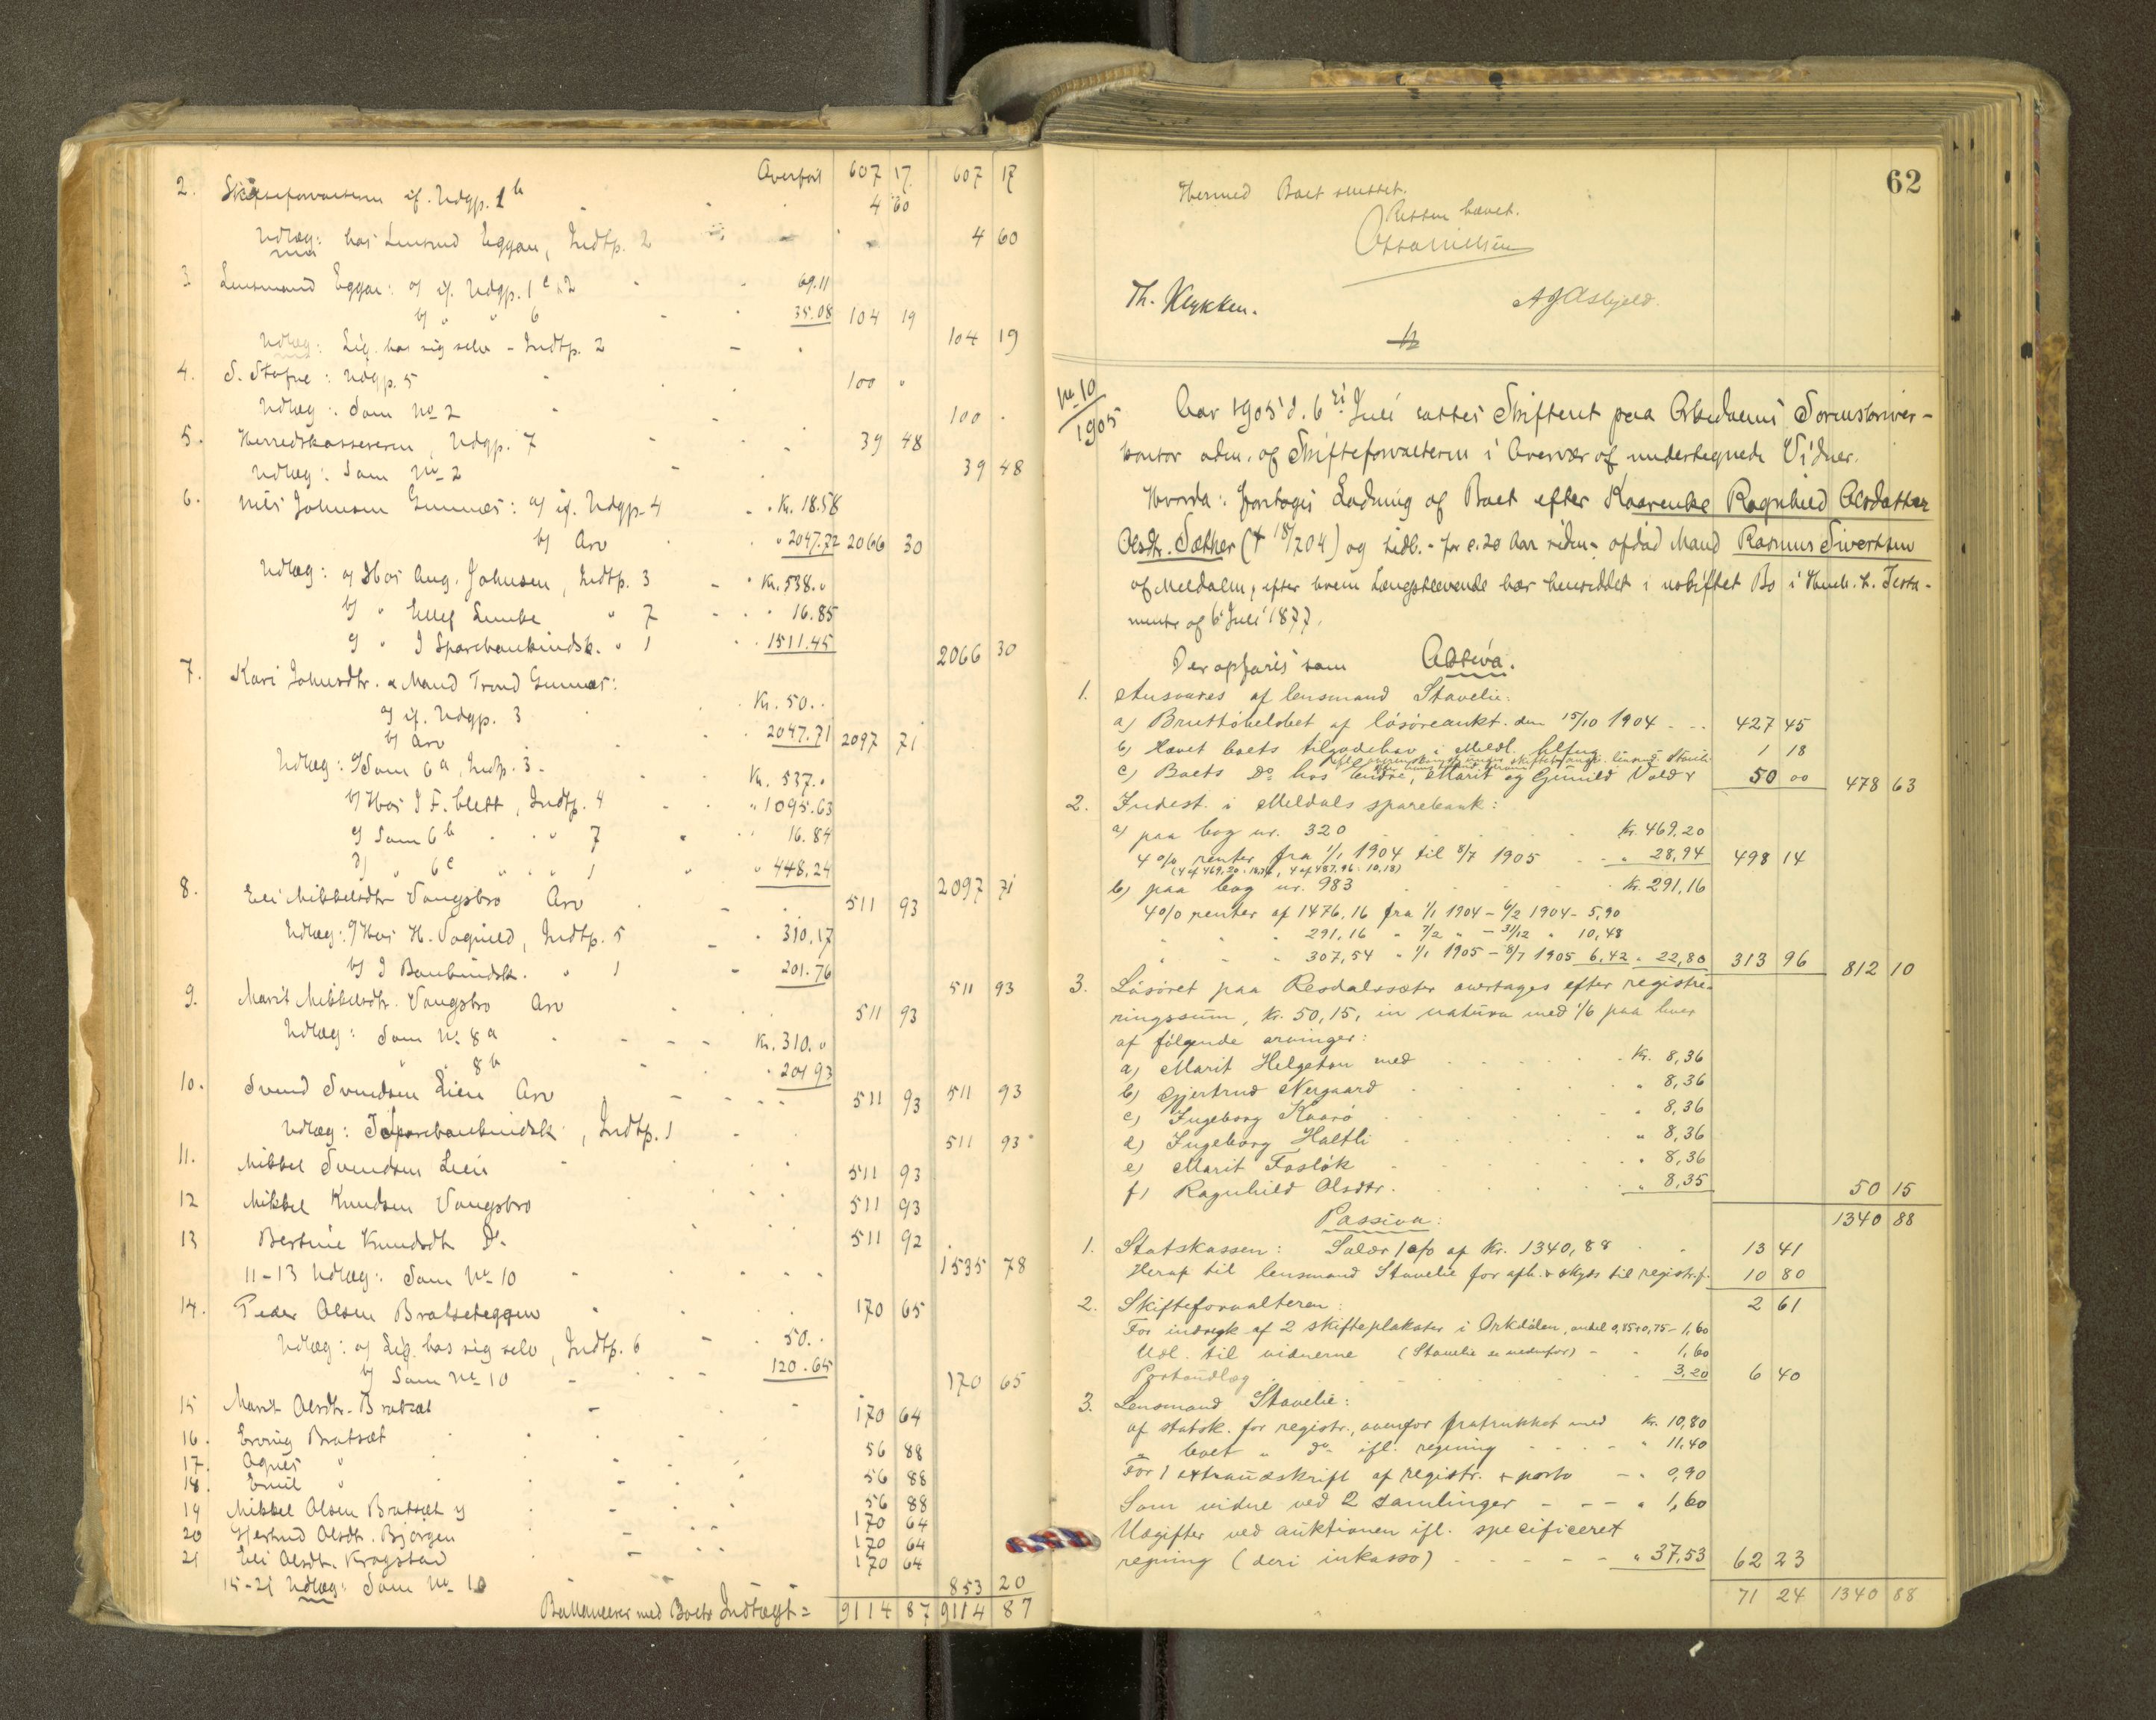 Overført 607 17 607 17
2. Skifteforvalteren if. Udgp. 1 b 4 60
Udlæg: hos Lensmd Eggan, Indtp. 2 4 60
3 Lensmand Eggan: a) if. Udgp. 1 c & 2 69.11
b) " " 6 35.08 104 19
Udlæg: Lig. hos sig selv - Indtp. 2 104 19
4. S. Stofne: Udgp. 5 100 "
Udlæg: Som No 2 100 -
5. Herredskassereren, Udgp. 7 39 48
Udlæg: Som No 2 39 48
6. Nils Johnsen Gunnes: a) if. Udgp. 4 Kr. 18.58
b) Arv " 2047.72 2066 30
Udlæg: a) Hos Aug. Johnsen, Indtp. 3 Kr. 538."
b) " Ellef 7 " 16.85
c) " I Sparebankindsk. " 1 1511.45
2066 30
7. Kari Johnsdtr. & Mand Trond Gunnes:
a) if. Udgp. 3 Kr. 50..
b) Arv 2047.71 2097 71
Udlæg: a) Som 6 a, Indtp. 3 - Kr. 537."
b) Hos I F. Clett, Indtp. 4 " 1095.63
c) Som 6 b " 7 16.84
d) " 6 c " 1 " 448.24
2097 71
8. Eli Mikkelsdtr Vangsbro Arv 511 93
Udlæg: a) Hos H. Vognild, Indtp. 5 310.17
b) I Bankindsk. " 1 201.76
511 93
9. Marit Mikkelsdtr. Vangsbro Arv 511 93
Udlæg: Som No 8 a Kr. 310."
" 8 b 201 93
511 93
10. Svend Svendsen Lien Arv 511 93
Udlæg: I Sparebankindsk, Indtp. 1 511 93
11. Mikkel Svendsen Lien 511 93
12 Mikkel Knudsen Vangsbro 511 93
13 Bertine Knudsdtr Do 511 92
11-13 Udlæg: Som No 10 1535 78
14. Peder Olsen Bratseteggen 170 65
Udlæg: a) Lig. hos sig selv, Indtp. 6 50.
b) Som No 10 120.65
170 65
15 Marit Olsdtr. Bratset 170 64
16. Erling Bratset 56 88
17. Agnes " 56 88
18. Emil " 56 88
19 Mikkel Olsen Bratset y 170 64
20 Gjertrud Olsdtr. Bjørgen 170 64
21 Eli Olsdtr. Krogstad 170 64
15-21 Udlæg: Som No 10 853 20
Ballancerer med Boets Indtægt = 9114 87 9114 87
62
Hermed Boet sluttet.
Retten hævet.
Otto Nielsen
Th. Klykken. A J Asbjeld.
No 10
1905
Aar 1905 d. 6te Juli sattes Skifteret paa Orkedalens Sorenskriver-
kontor adm. af Skifteforvalteren i Overvær af undertegnede Vidner.
Hvorda: foretoges Slutning af Boet efter Kaarenke Ragnhild Olsdatter
Olsdtr. Sæther († 18/7 04) og tidl. - for c. 20 Aar siden - afdød Mand Rasmus Sivertsen
af Meldalen, efter hvem Længstlevende har hensiddet i uskiftet Bo i Henh. t. Testa-
mente af 6 Juli 1877.
Der opføres som Activa.
1. Ansvares af lensmand Stavelie:
a) Bruttobeløbet af løsøreaukt. den 15/10 1904 - - - 427 45
b) Hævet boets tilgodehav. i Meldl. 1 18
c) Boets Do hos Endre, Marit og Gunild Vold 50 00 478 63
2. Indest. i Meldals sparebank:
a) paa bog nr. 320 Kr. 469.20
4 % renter fra 1/1 1904 til 8/7 1905 " 28,94 498 14
(4 af 469,20: 18,76, 4 af 487,96: 10,18)
b) paa bog nr. 983 Kr. 291,16
4 % renter af 1476,16 fra 1/1 1904 - 6/2 1904 - 5,90
" " " 291,16 " 7/2 " - 31/12 " 10,48
" " " 307,54 " 1/1 1905 - 8/7 1905 6,42 " 22,80 313 96 812 10
3. Løsøret paa Resdalssæter overtages efter registre-
ringssum, Kr. 50,15, in natura med 1/6 paa hver
af følgende arvinger:
a) Marit Helgeton med Kr. 8,36
b) Gjertrud Nergaard " 8,36
c) Ingeborg Kaarø " 8,36
d) Ingeborg Haltli " 8,36
e) Marit Fosløk " 8,36
f) Ragnhild Olsdtr. " 8,35 50 15
Passiva: 1340 88
1. Statskassen: Salær 1 % af Kr. 1340,88 13 41
Heraf til lensmand Stavelie for afh. & skyds til registr.f. 10 80
2. Skifteforvalteren: 2 61
For indryk af 2 skifteplakater i Orkdølen, andel 0,85+0,75 - 1,60
Udl. til vidnerne (Stavelie se nedenfor) - 1,60
Portoudlæg 3,20 6 40
3. Lensmand Stavelie:
af statsk. for registr., ovenfor fratrukket med Kr. 10,80
" boet " do ifl. regning " 11,40
For 1 extraudskrift af registr. & porto - " 0,90
Som vidne ved 2 samlinger - - - " 1,60
Udgifter ved auktionen ifl. specificeret
regning (deri inkasso) " 37,53 62 23
71 24 1340 88